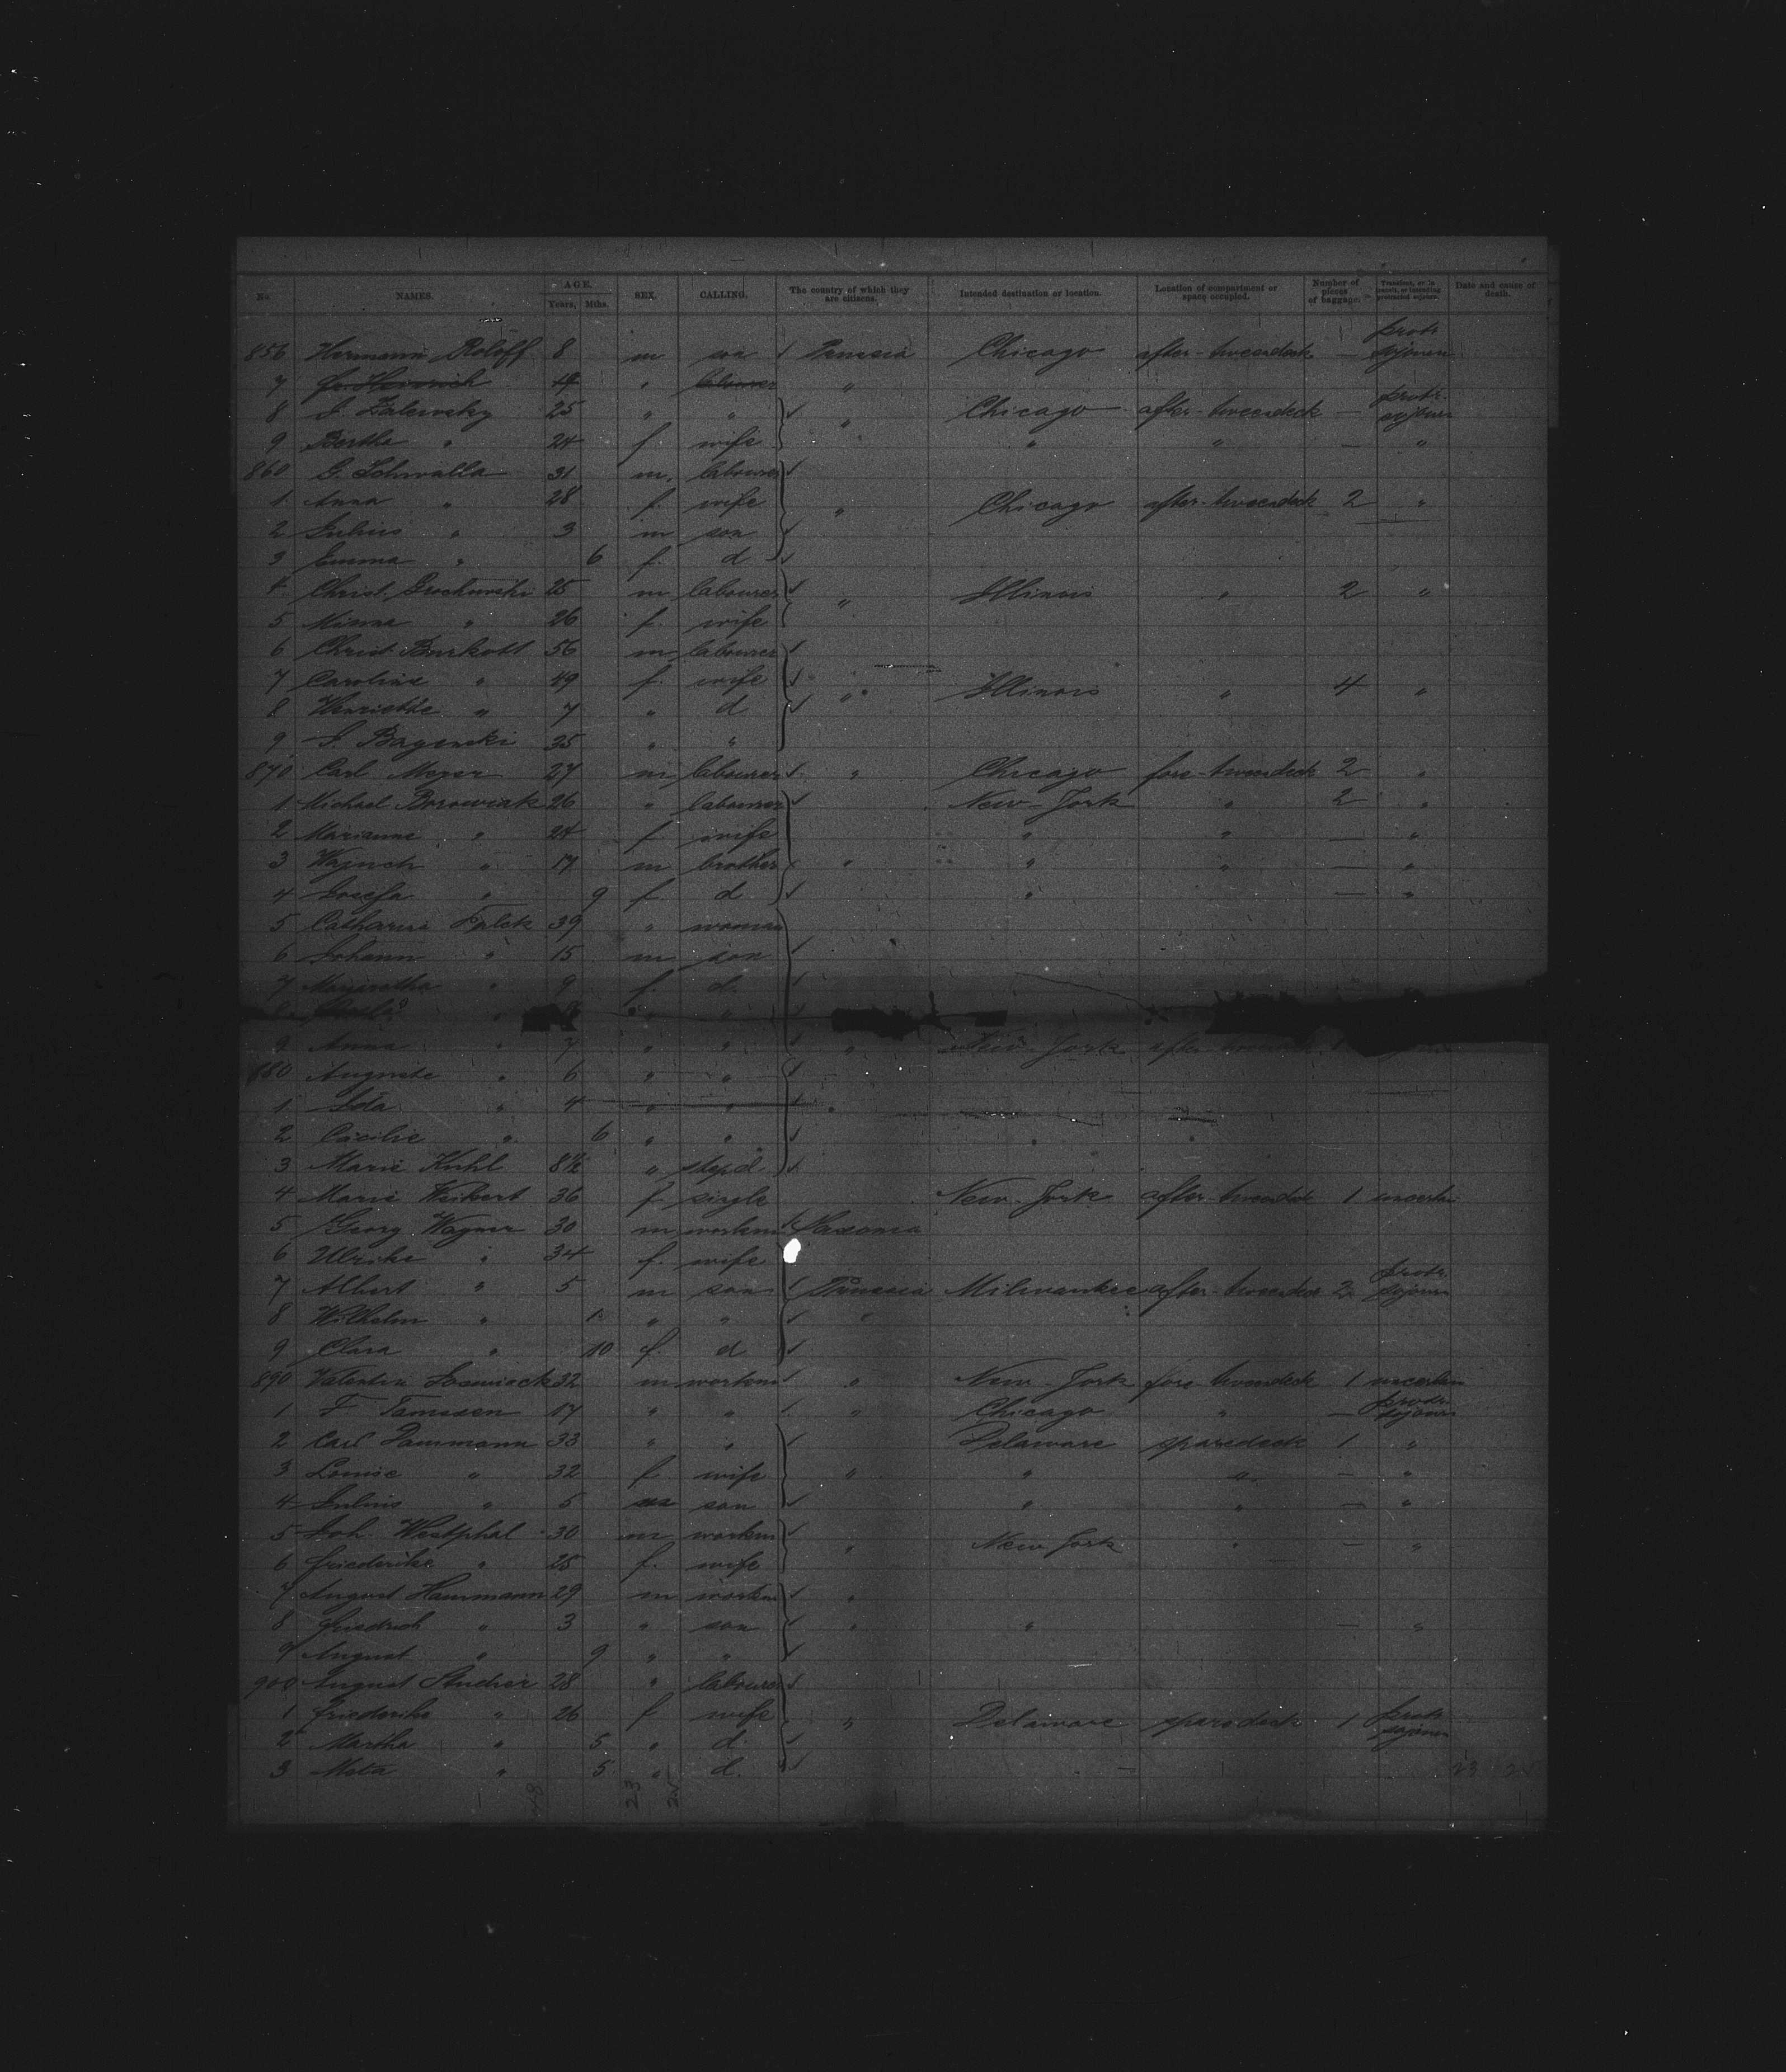 No. NAMES. AGE. Years, Mths. SEX. CALLING. The country of which they are citizens. Intended destination or location. Location of compartment or space occupied. Number of pieces of baggage. Transient, or in transit, or intending protracted sojourn. Date and cause of death.
856 Hermann Roloff 8 m son Prussia Chicago after-tweendeck — protr. sojourn
7 Heinrich 19 " labourer "
8 J. Zalewsky 25 " " " Chicago after-tweendeck — protr. sojourn
9 Bertha " 24 f wife " " — "
860 G. Schwalla 31 m. labourer
1 Anna " 28 f. wife " Chicago after-tweendeck 2 "
2 Julius " 3 m son
3 Emma " 6 f. d
4 Christ. 25 m labourer " Illinois " 2 "
5 Minna " 26 f. wife
6 Christ. Burkott 56 m labourer
7 Caroline " 49 f. wife " Illinois " 4 "
8 Henriette " 7 " d
9 35 " "
870 Carl Meyer 27 m labourer " Chicago fore-tweendeck 2 "
1 Michael Borowiak 26 " labourer New-York " 2 "
2 Marianne " 24 f wife " " — "
3 " 17 m brother " " " — "
4 Josefa " 9 f. d " — "
5 Falck 39 " woman
6 Johann " 15 m son
7 Margaretha " 9 f. d.
8 " "
9 Anna " 7 " " " New York after
880 Auguste " 6 " "
1 Ida " 4 " " "
2 Cäcilie " 6 " " " "
3 Marie Kuhl 8½ " step d
4 Marie Weikert 36 f single New-York after-tweendeck 1 uncertain
5 Georg Wagner 30 m workm Saxonia
6 Ulrike " 34 f. wife
7 Albert " 5 m son Prussia Milwaukee after-tweendeck 2 protr. sojourn
8 Wilhelm " " " "
9 Clara " 10 f. d
890 Valentin 32 m workm " New-York fore-tweendeck 1 uncertain
1 F. Tamssen 17 " " " Chicago " — protr. sojourn
2 Carl Dammann 33 " " Delaware sparedeck 1 "
3 Louise " 32 f wife " " " — "
4 Julius " 5 m son " " — "
5 Joh. Westphal 30 m workm " New York " — "
6 Friederike " 25 f. wife
7 August Hammann 29 m workm "
8 Friedrich " 3 " son " " — "
9 August " 9 " "
900 August Studier 28 " labourer
1 Friederike " 26 f wife " Delaware sparedeck 1 protr. sojourn
2 Martha " 5 " d
3 Meta " 5 " d.
48 23 25
23 25